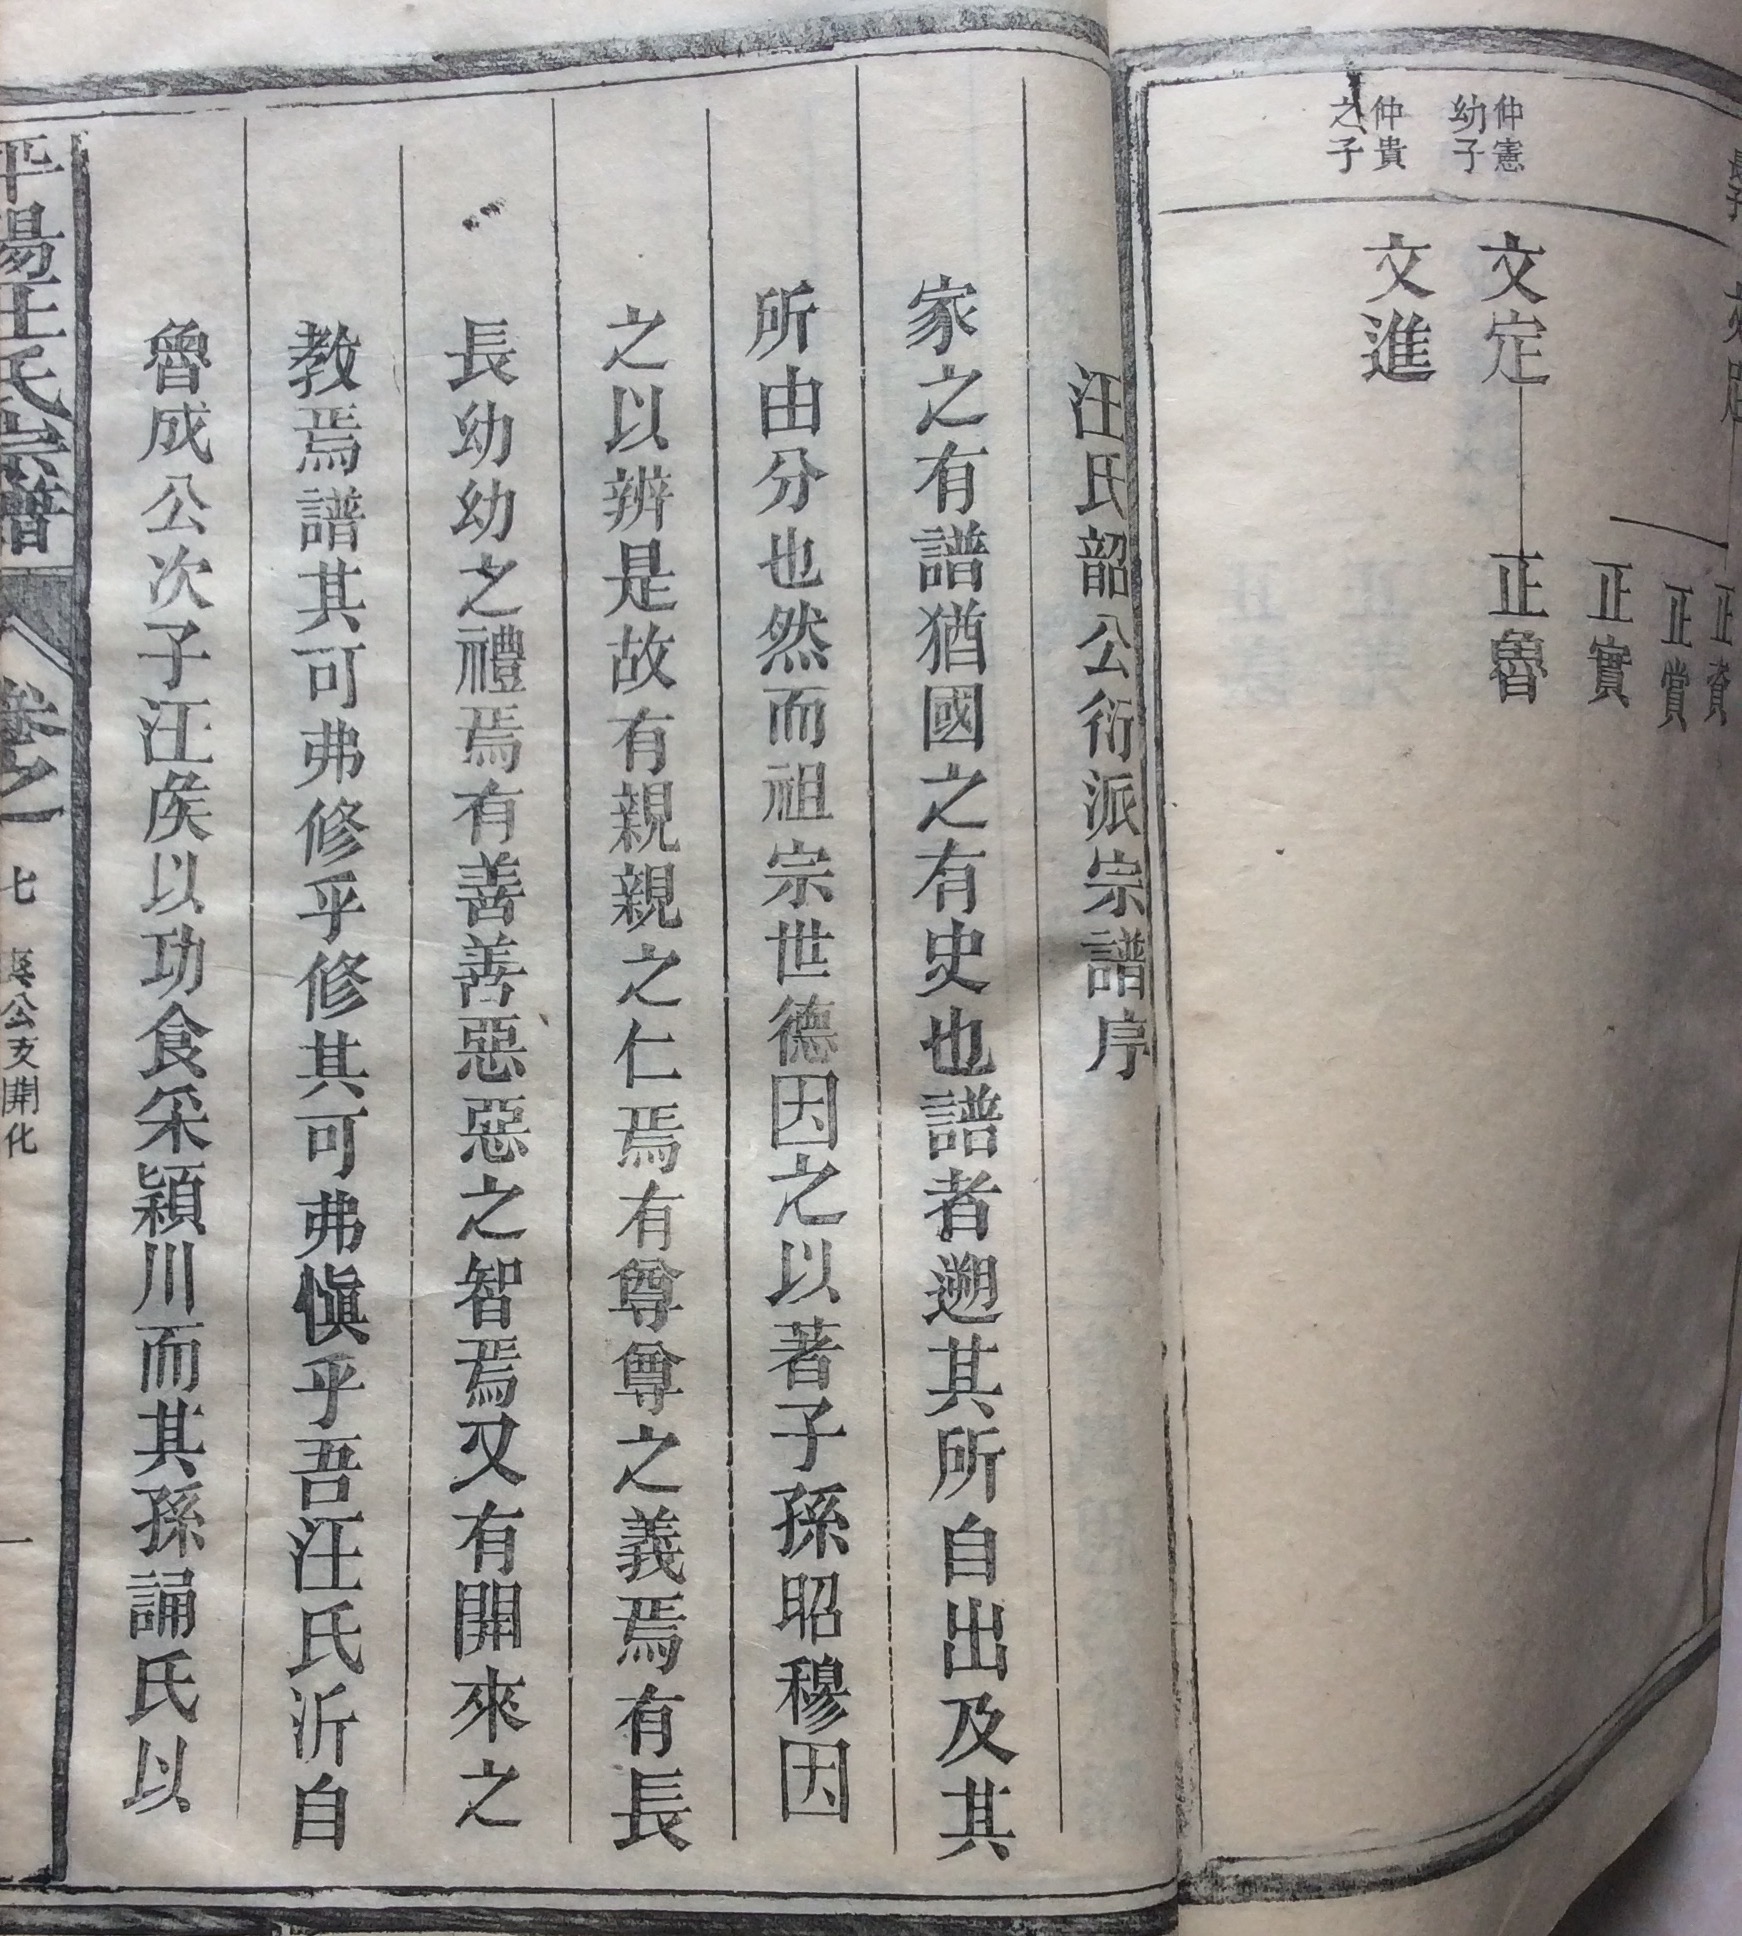 正賞
正實
仲憲幼子
文定 正魯
仲貴之子
文進
汪氏韶公衍派宗譜序
家之有譜猶國之有史也譜者遡其所自出及其
所由分也然而祖宗世德因之以著子孫昭穆因
之以辨是故有親親之仁焉有尊尊之義焉有長
長幼幼之禮焉有善善惡惡之智焉又有開來之
教焉譜其可弗修乎修其可弗愼乎吾汪氏沂自
魯成公次子汪矦以功食采穎川而其孫誦氏以
平陽汪氏宗譜 卷之一 七 公支開化 一